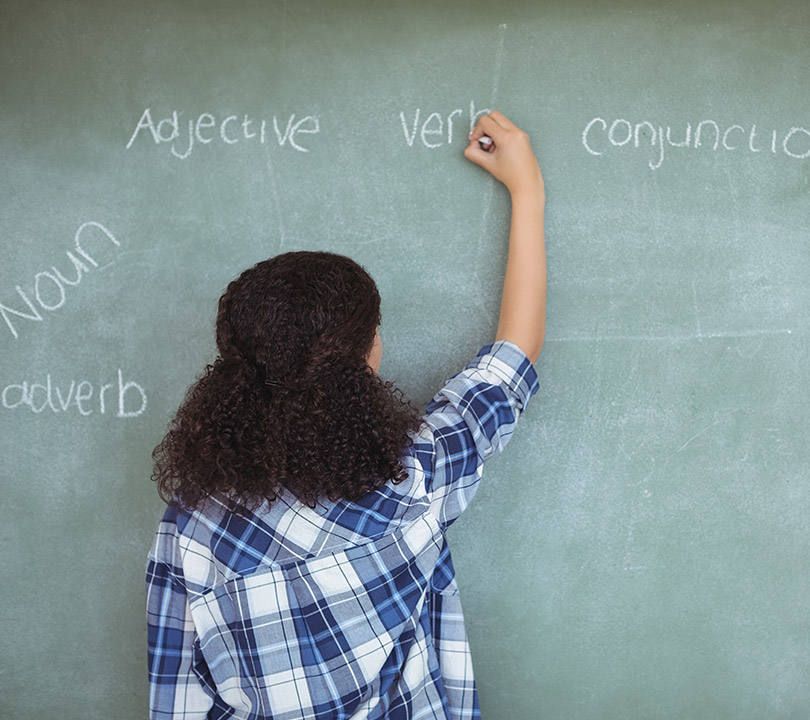 Adjective verb conjunctio
Noun
adverb